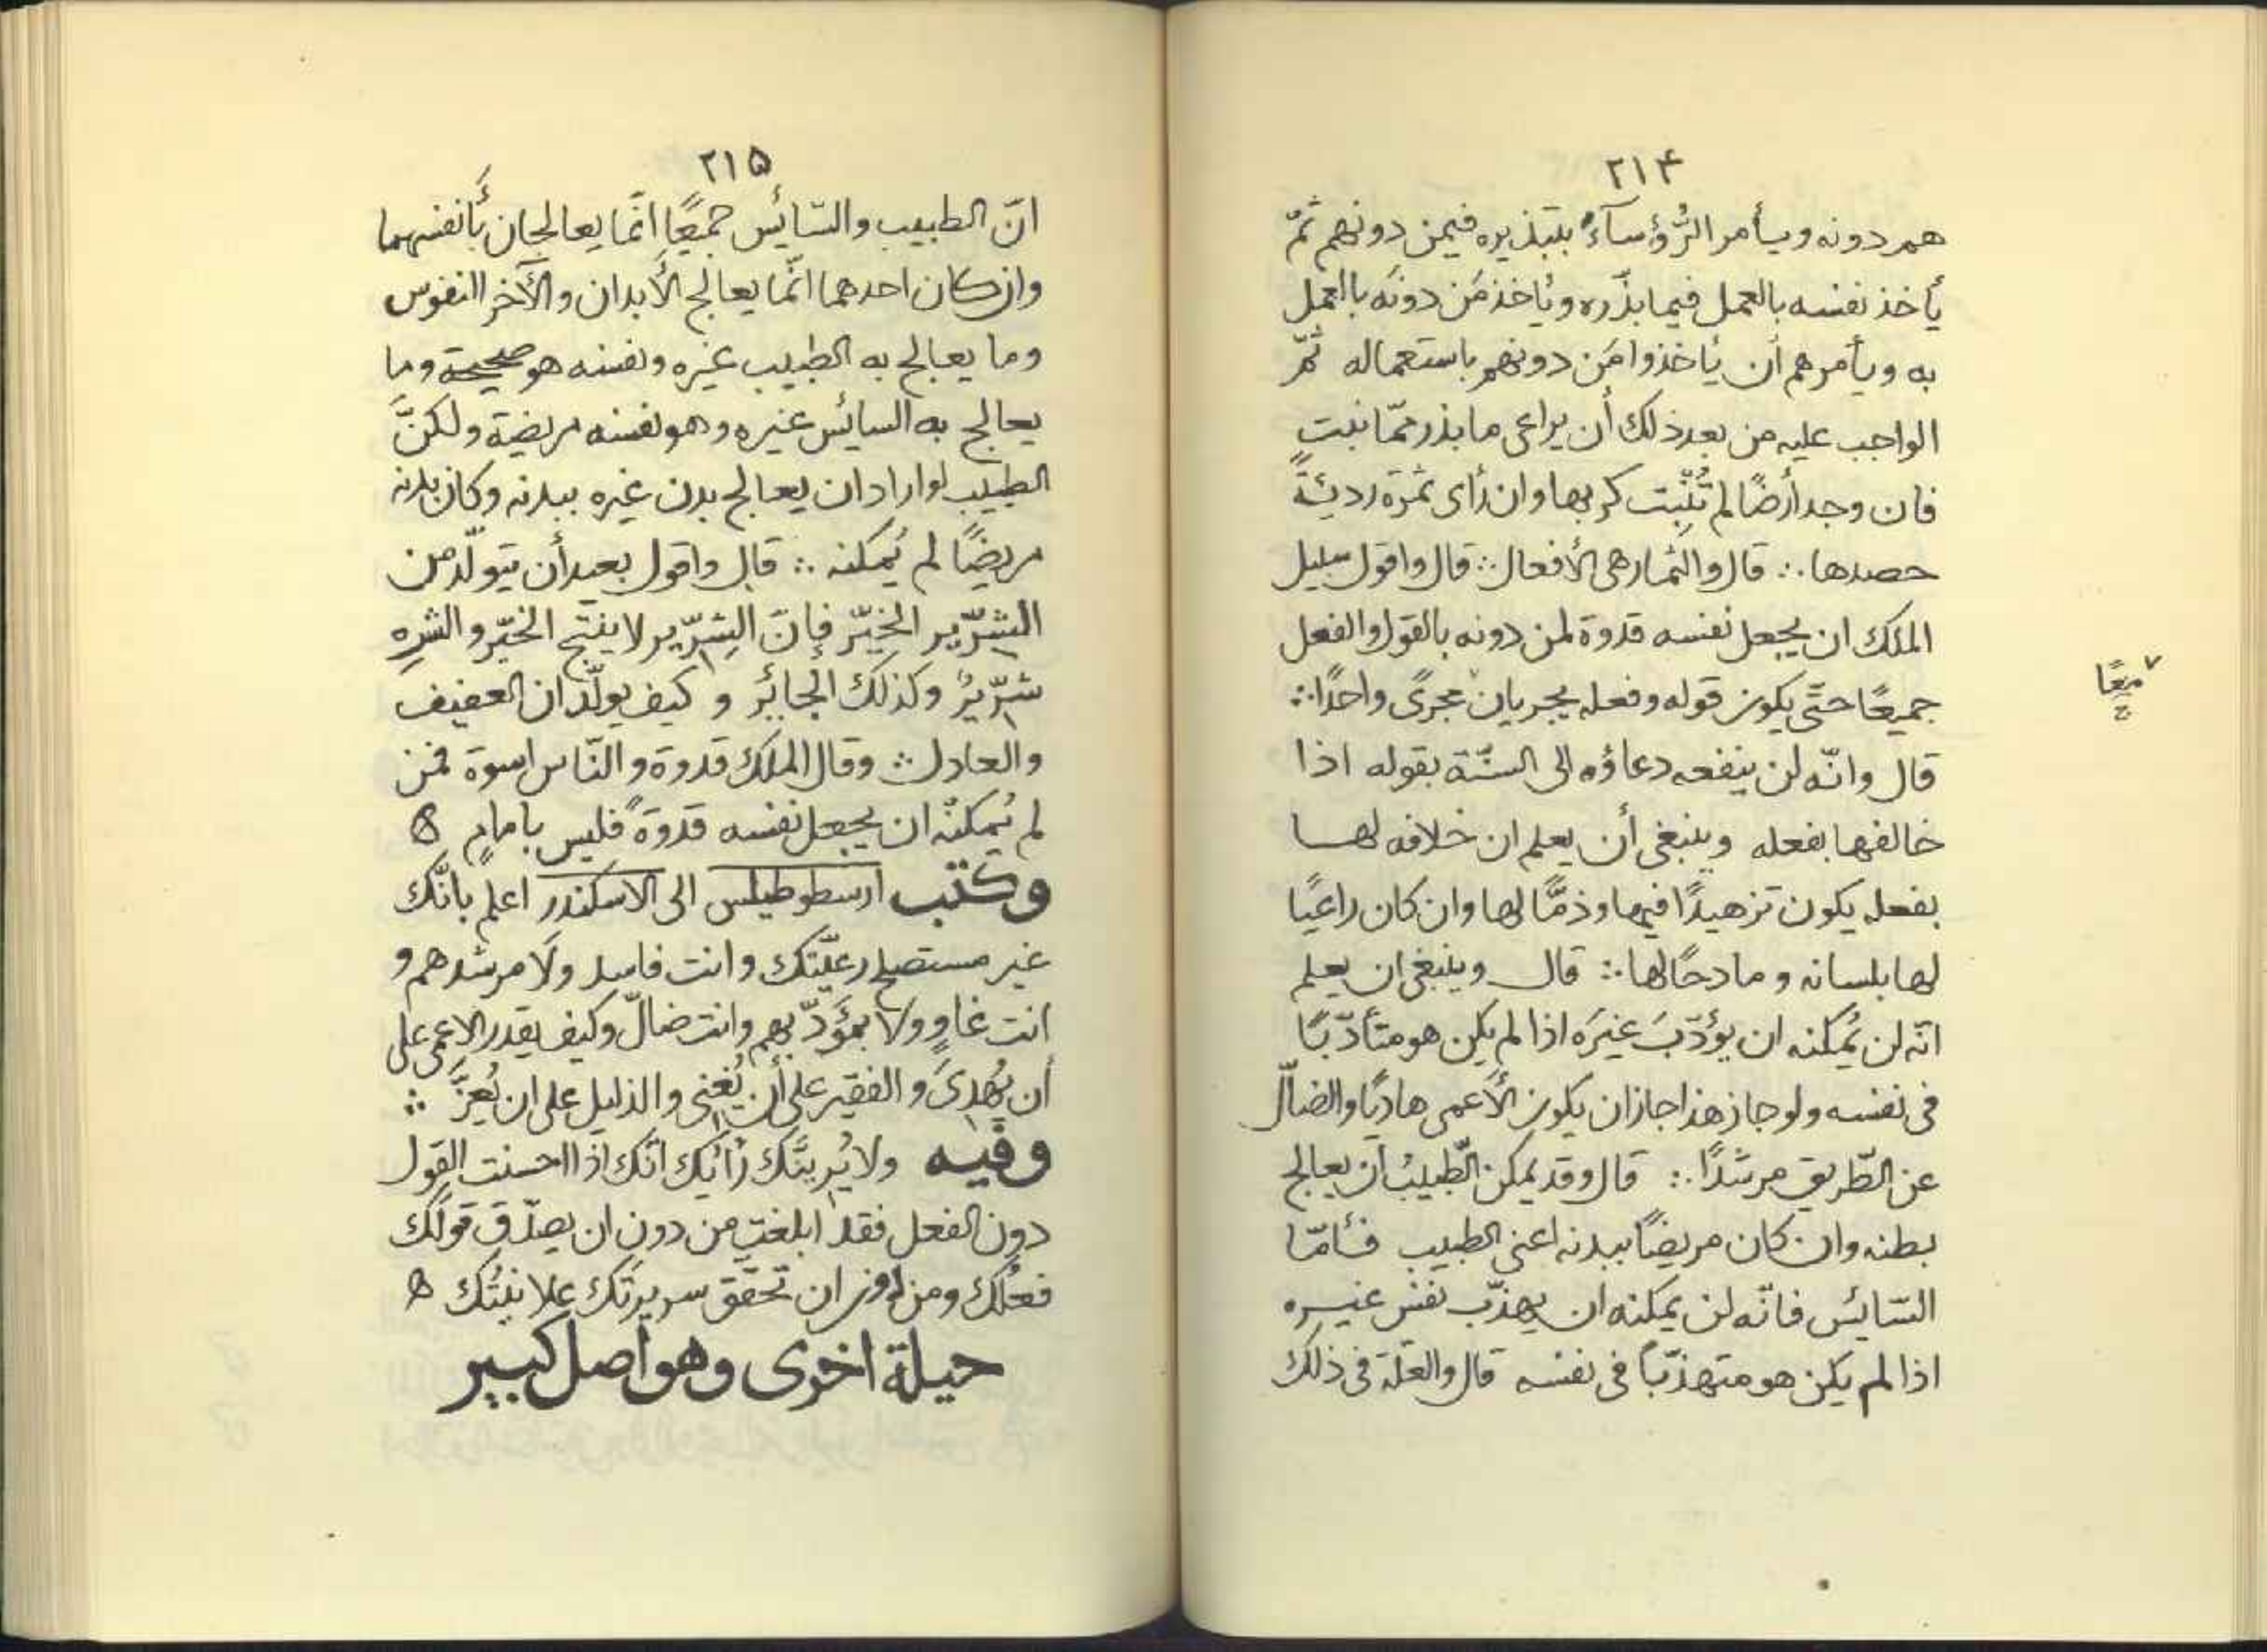 ٢١۴
هم دونه ويأمر الرُّؤسآءَ بتبذيره فيمن دونهم ثمّ
يأخذ نفسه بالعمل فيما بذّره ويأخذ مَن دونَه بالعمل
به ويأمرهم أن يأخذوا مَن دونهم باستعماله ثمّ
الواجب عليه من بعد ذلك أن يراعى ما بذر ممّا نبت
فان وجد أرضًا لم تُنْبِت كربها وان رأى ثمرَة رديئةً
حصدها ∴ قال والثمار هى الأفعال ∴ قال واقول سبيل
الملك ان يجعل نفسه قدوة لمن دونه بالقول والفعل
جميعًا حتّى يكون قوله وفعله يجريان مجرىً واحدًا ∴
معًا
قال وانّه لن ينفعه دعاؤه الى السنّة بقوله اذا
خالفها بفعله وينبغى أن يعلم ان خلافه لها
بفعله يكون تزهيدًا فيها وذمًّا لها وان كان راعيًا
لها بلسانه ومادحًا لها ∴ قال وينبغى ان يعلم
انّه لن يُمكنه ان يؤدّبَ غيرَه اذا لم يكن هو متأدّبًا
فى نفسه ولو جاز هذا جاز ان يكون الأعمى هاديًا والضالّ
عن الطّريق مرشدًا ∴ قال وقد يمكن الطّبيبُ أن يعالج
بطنه وان كان مريضًا ببدنه اعنى الطبيب فأمّا
السّايُس فانّه لن يمكنه ان يهذّب نفس غيره
اذا لم يكن هو متهذّبًا فى نفسه قال والعلّة فى ذلك
٢١۵
انّ الطبيب والسّايُس جميعًا انّما يعالجان بأنفسهما
وان كان احدهما انّما يعالج الأبدان والآخر النفوس
وما يعالج به الطبيب غيره ونفسه هو صحيحة وما
يعالج به السايُس غيره وهو نفسه مريضة ولكنّ
الطبيب لو اراد ان يعالج بدن غيره ببدنه وكان بدنه
مريضًا لم يُمكنه ∴ قال واقول بعيد أن يتولّد من
الشِرّير الخيّر فإنّ الشِرّير لا ينتج الخيّر والشرِه
شرّيرُ وكذلك الجايُر و كيف يولّدان العفيف
والعادل ∴ وقال الملك قدوة والنّاس اسوة فمن
لم يُمكنه ان يجعل نفسه قدوةً فليس بامامٍ ه
وكتب ارسطوطيلس الى الاسكندر اعلم بانّك
غير مستصلح رعيّتك وانت فاسد ولا مرشدهم و
انت غاوٍ ولا بمؤَدّبهم وانت ضالّ وكيف يقدر الاعمى على
أن يُهدِىَ و الفقير على أن يُغنى والذليل على ان يُعِزَّ ∴
وفيه ولا يُرِيبَنَّك رَأيُك انّك اذا احسنت القول
دون الفعل فقد ابلغت من دون ان يصدّق قولَك
فعلُك ومن دون ان تحقّق سريرتَك علانيتُك ه
حيلة اخرى وهو اصل كبير